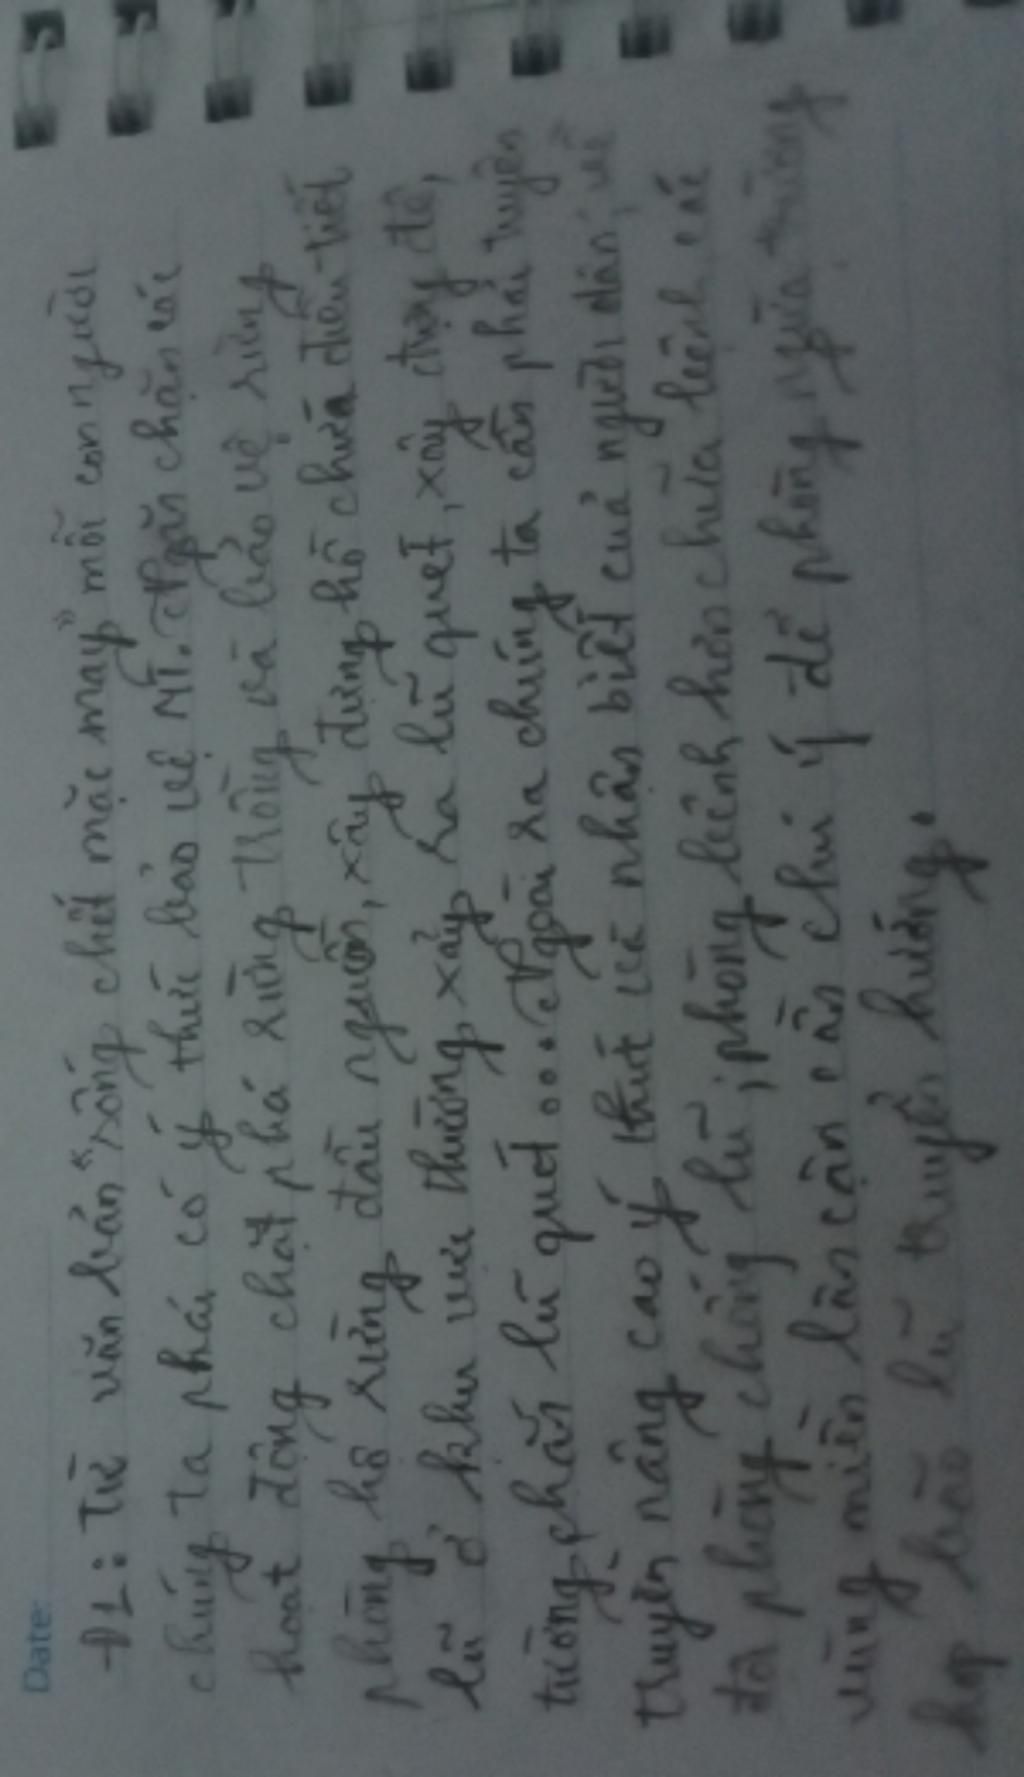 Date:
Đ1: Từ văn bản "sống chết mặc may" mỗi con người
chúng ta phải có ý thức bảo vệ MT. Ngăn chặn các
hoạt động chặt phá rừng trồng và bảo vệ rừng
phòng hộ rừng đầu nguồn, xây dựng hồ chứa điều tiết
lũ ở khu vực thường xảy ra lũ quét, xây dựng đê,
tường chắn lũ quét... Ngoài ra chúng ta cần phải tuyên
truyền nâng cao ý thức và nhận biết của người dân, về
phòng chống lũ, phòng bệnh hơn chữa bệnh các
vùng miền lân cận cần chú ý để phòng ngừa trường
hợp bão lũ chuyển hướng.